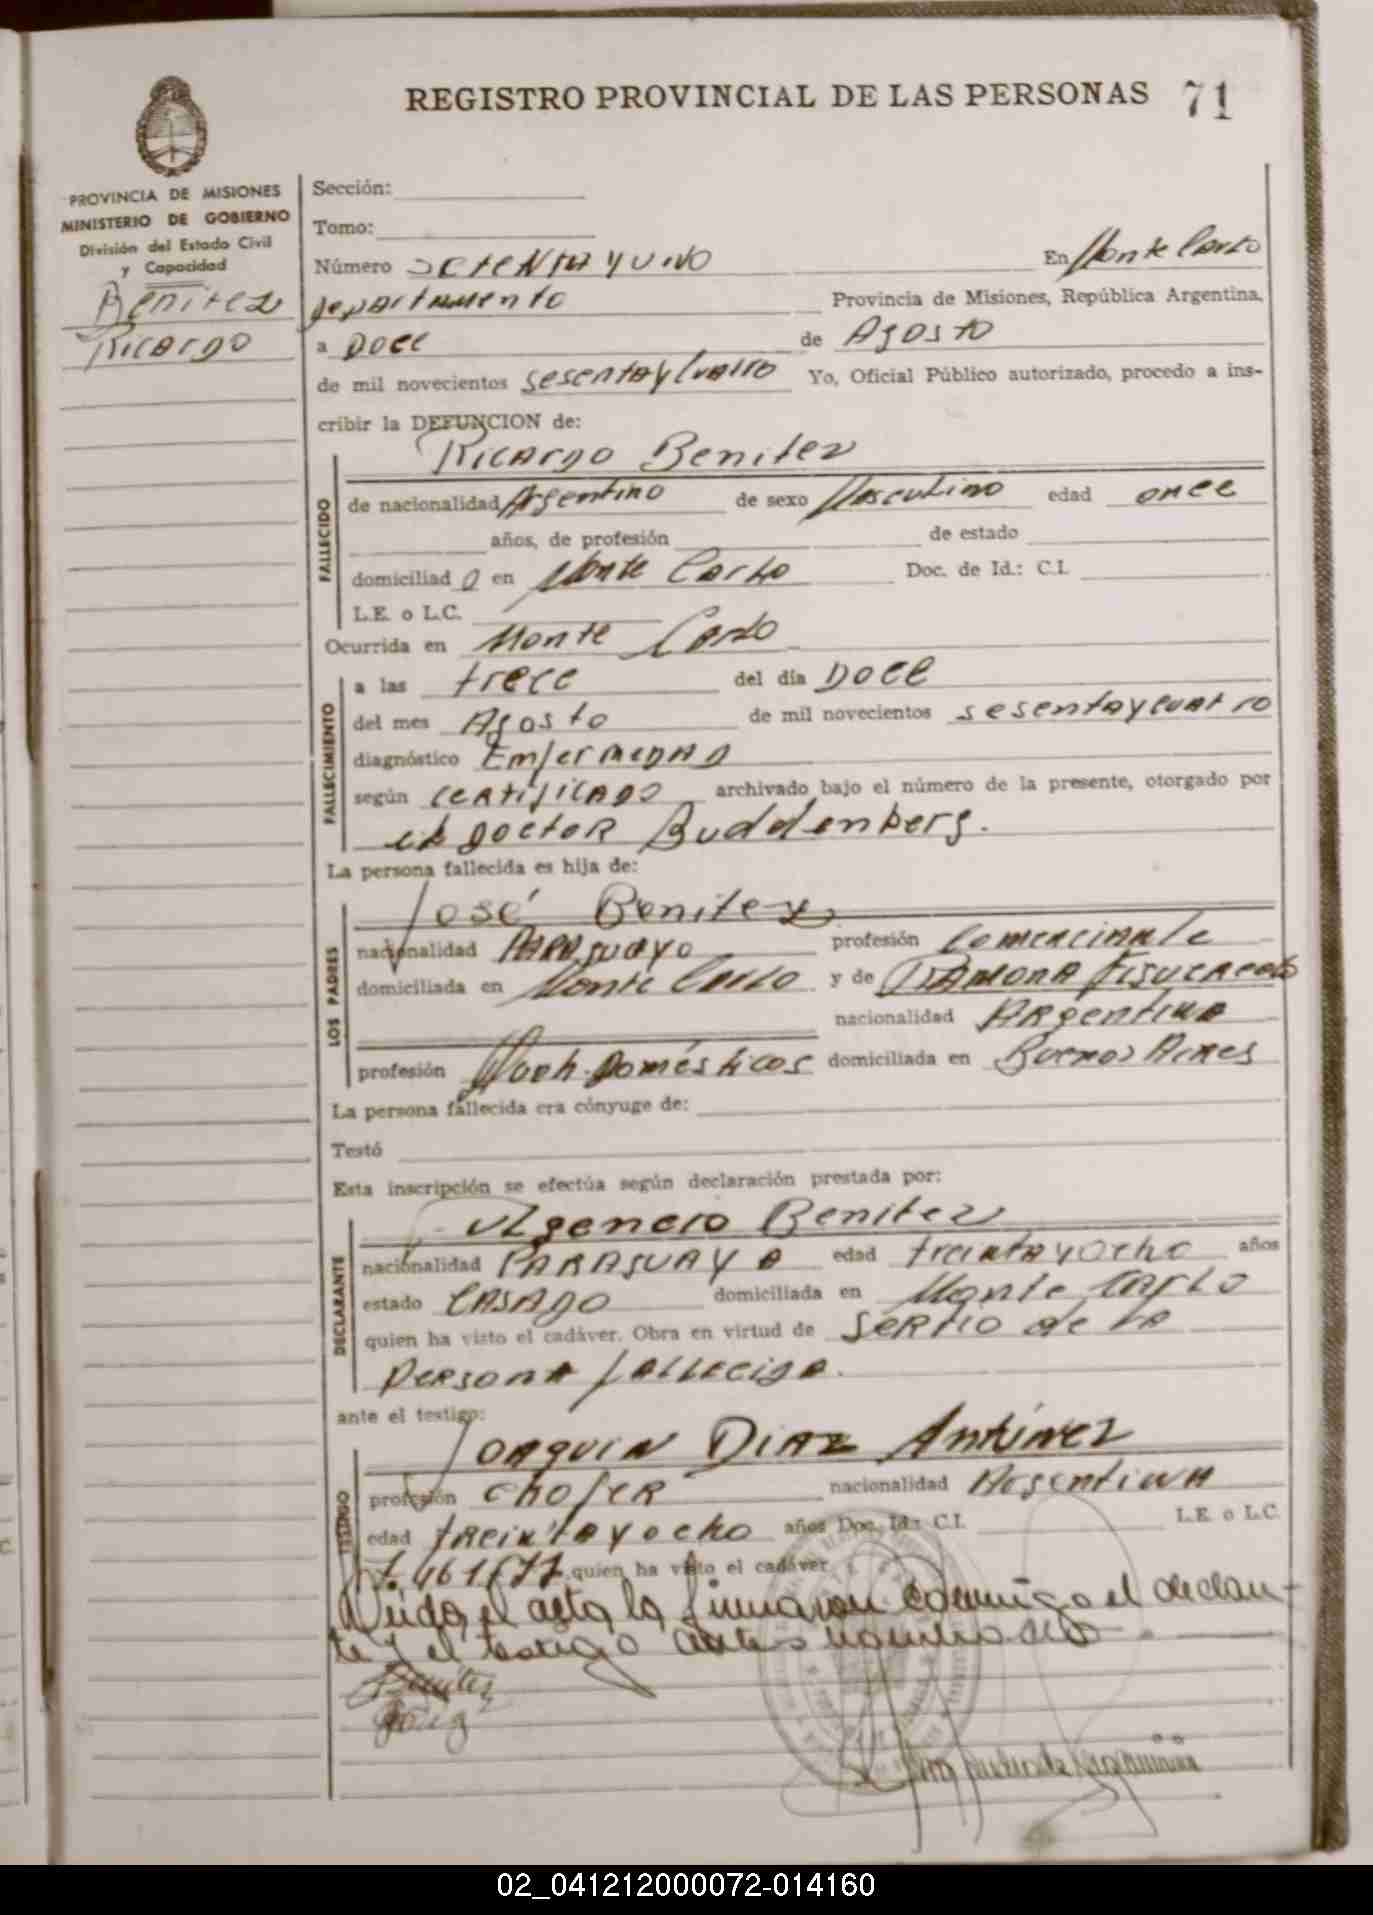 REGISTRO PROVINCIAL DE LAS PERSONAS 71
PROVINCIA DE MISIONES
MINISTERIO DE GOBIERNO
División del Estado Civil
y Capacidad
Benitez
Ricardo
Sección:
Tomo:
Número SETENTA Y UNO En Monte Carlo
departamento Provincia de Misiones, República Argentina,
a DOCE de Agosto
de mil novecientos sesenta y Cuatro Yo, Oficial Público autorizado, procedo a ins-
cribir la DEFUNCION de:
Ricardo Benitez
FALLECIDO
de nacionalidad Argentino de sexo Masculino edad once
años, de profesión de estado
domiciliad o en Monte Carlo Doc. de Id.: C.I.
L.E. o L.C.
Ocurrida en Monte Carlo
FALLECIMIENTO
a las trece del día DOCE
del mes Agosto de mil novecientos sesenta y cuatro
diagnóstico Enfermedad
según certificado archivado bajo el número de la presente, otorgado por
el doctor Buddenberg.
La persona fallecida es hija de:
LOS PADRES
José Benitez
nacionalidad PARAGUAYO profesión Comerciante
domiciliada en Monte Carlo y de RAMONA
nacionalidad Argentina
profesión Domésticos domiciliada en Buenos Aires
La persona fallecida era cónyuge de:
Testó
Esta inscripción se efectúa según declaración prestada por:
DECLARANTE
Benitez
nacionalidad PARAGUAYA edad treinta y ocho años
estado CASADO domiciliada en Monte Carlo
quien ha visto el cadáver. Obra en virtud de de la
persona fallecida.
ante el testigo:
TESTIGO
Joaquin DIAZ Antúnez
profesión chofer nacionalidad Argentina
edad treinta y ocho años Doc. Id.: C.I. L.E. o L.C.
quien ha visto el cadáver
Leida el acta la firmaron conmigo el declaran-
te y el testigo antes nombrado
Benitez
02_041212000072-014160